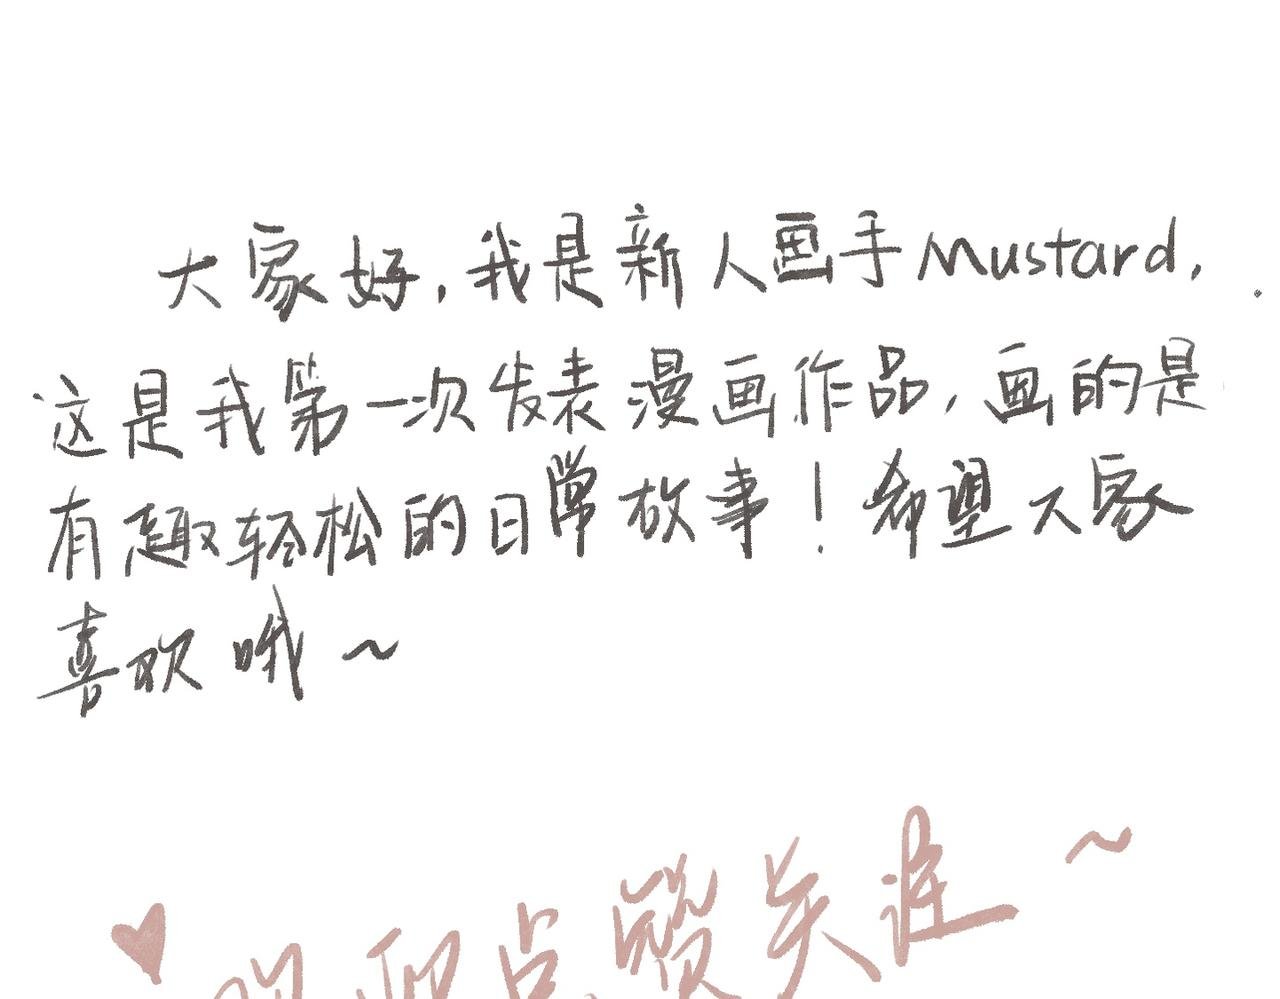 大家好，我是新人画手Mustard，
这是我第一次发表漫画作品，画的是
有趣轻松的日常故事！希望大家
喜欢哦～
欢迎点赞关注～